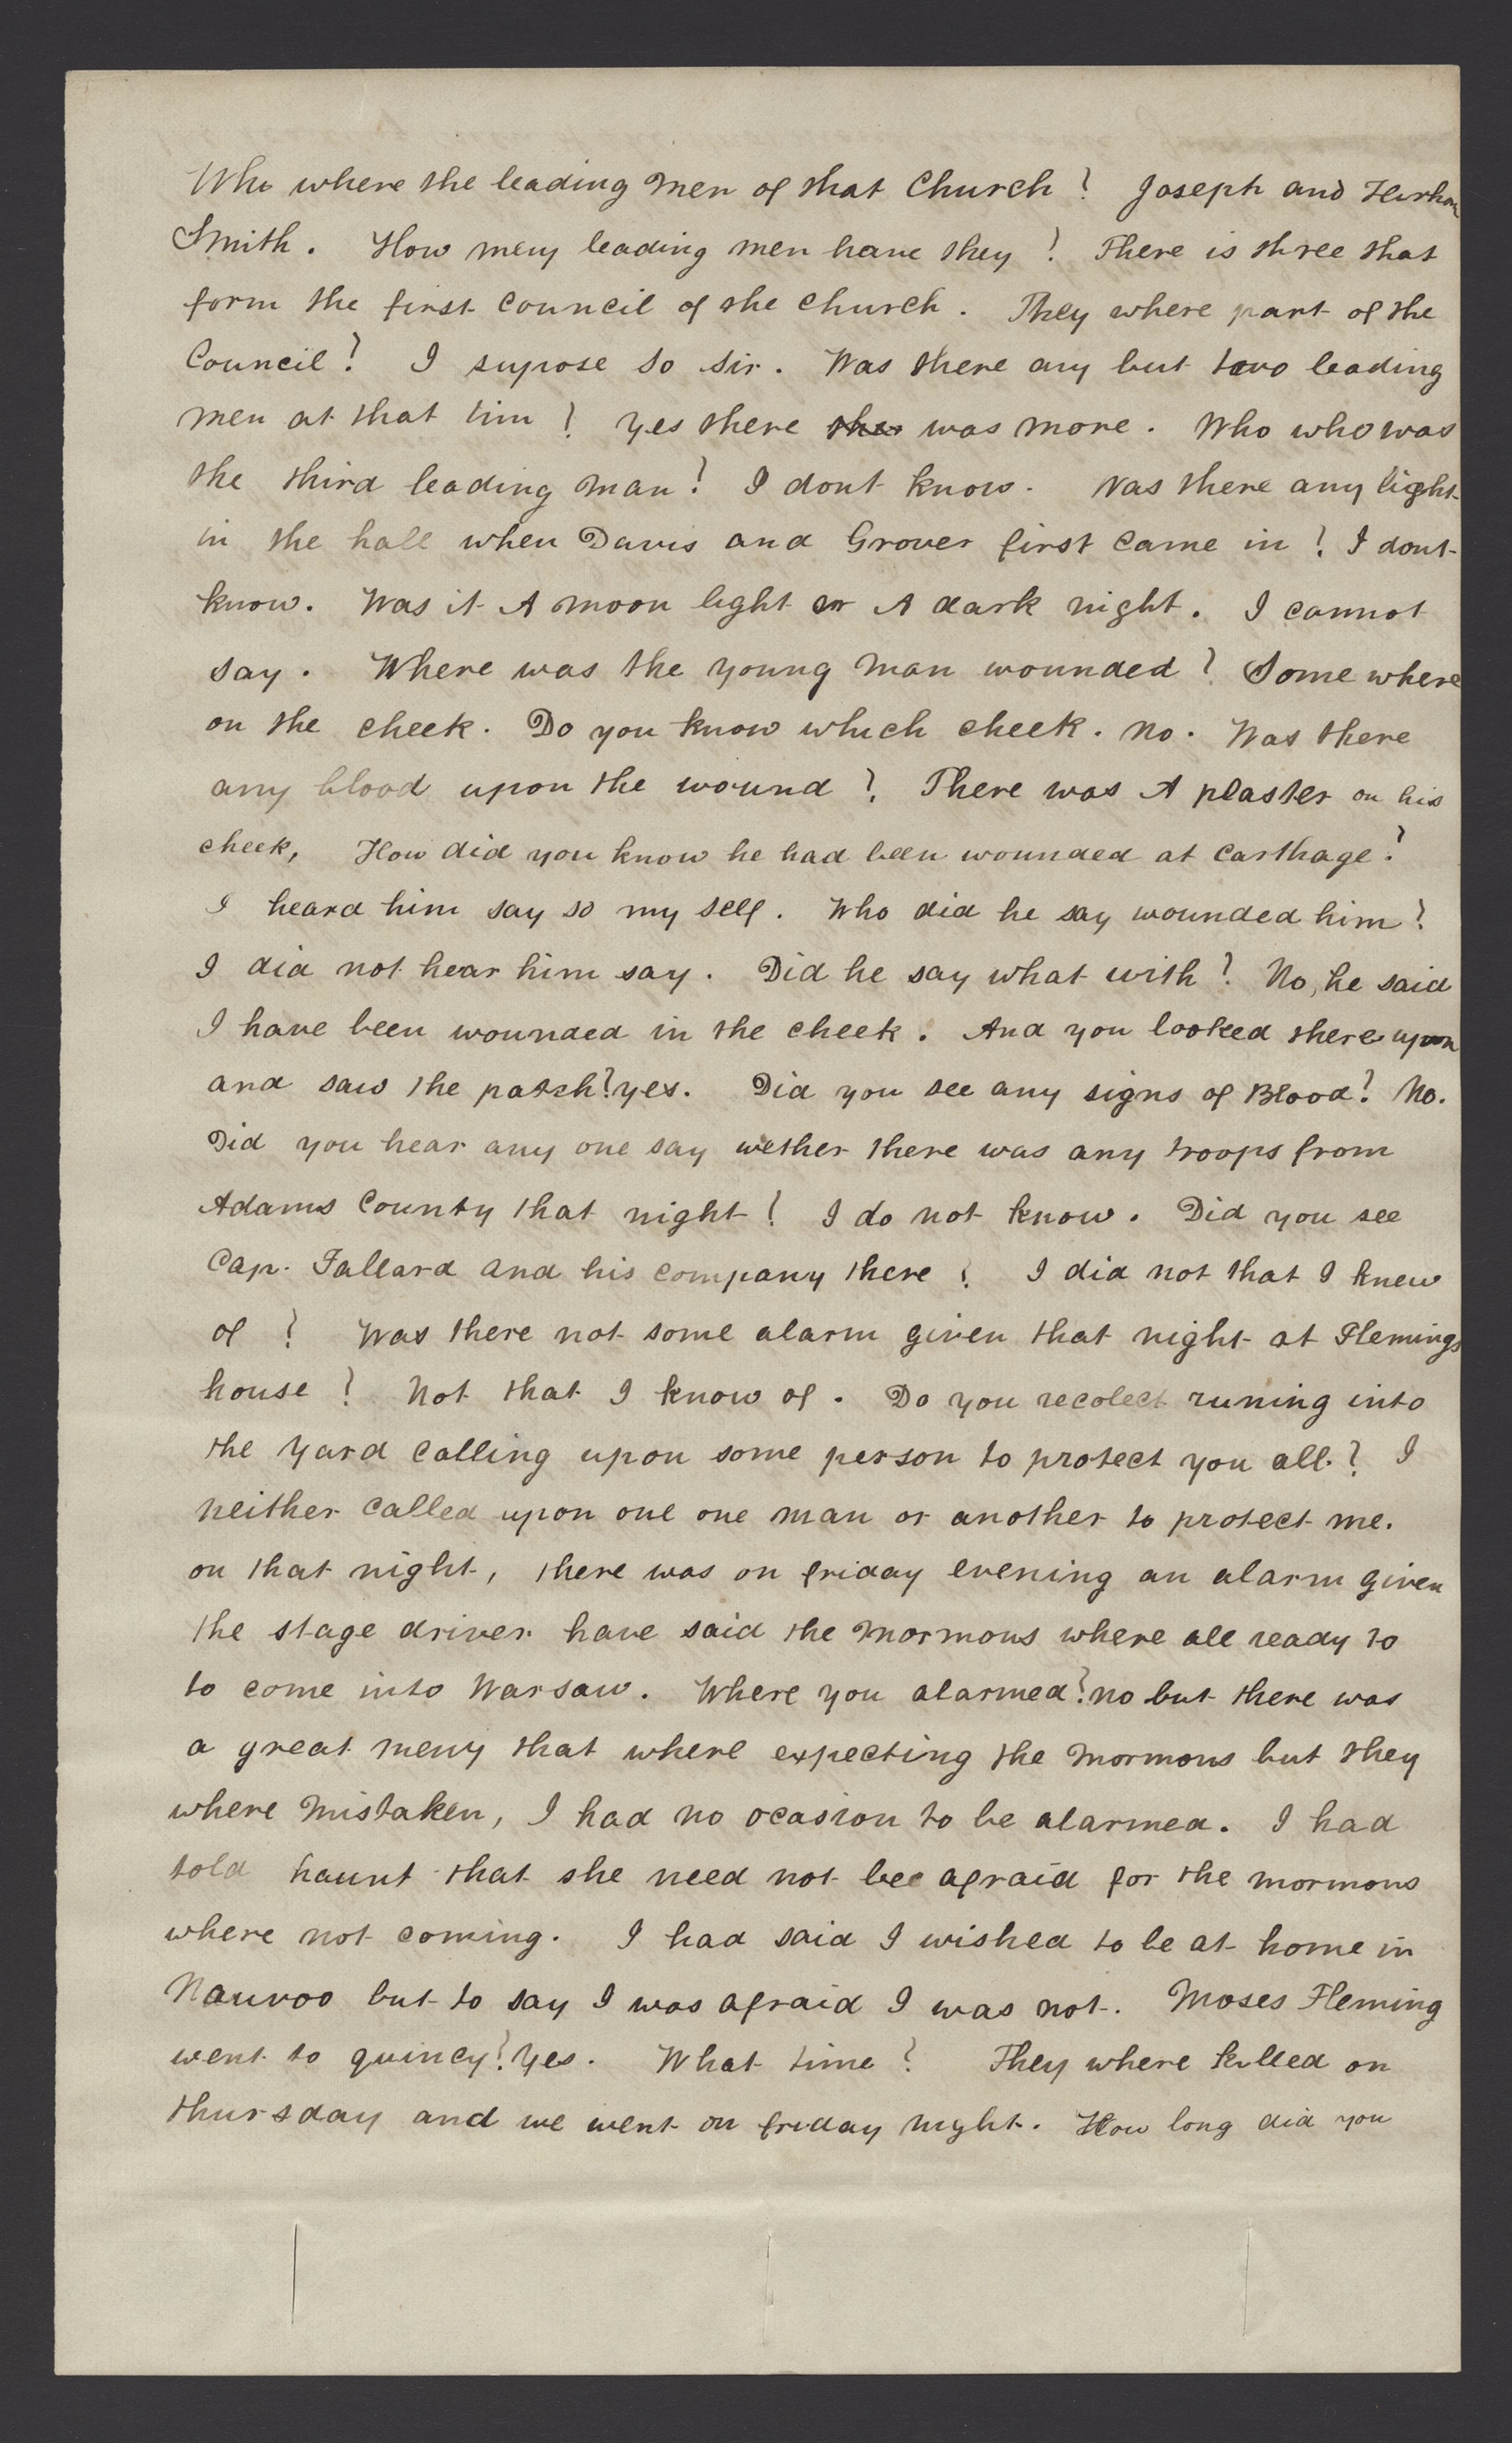 Who where the leading men of that Church? Joseph and
Smith. How meny leading men have they? There is three that
form the first Council of the church. They where part of the
Council? I supose so sir. Was there any but two leading
men at that tim? yes there was more. Who who was
the third leading man? I dont know. Was there any light
in the hall when Davis and Grover first came in? I dont
know. Was it A moon light or A dark night. I cannot
say. Where was the young man wounded? Some where
on the cheek. Do you know which cheek. No. Was there
any blood upon the wound? There was A plaster on his
cheek, How did you know he had been wounded at Carthage?
I heard him say so my self. Who did he say wounded him?
I did not hear him say. Did he say what with? No, he said
I have been wounded in the cheek. And you looked there upon
and saw the patch? yes. Did you see any signs of Blood? No.
Did you hear any one say wether there was any troops from
Adams County that night? I do not know. Did you see
Cap. and his company there? I did not that I knew
of? Was there not some alarm given that night at Flemings
house? Not that I know of. Do you recolect runing into
the yard calling upon some person to protect you all? I
neither called upon one one man or another to protect me.
on that night, there was on friday evening an alarm given
the stage driver have said the mormons where all ready to
to come into Warsaw. Where you alarmed? no but there was
a great meny that where expecting the mormons but they
where mistaken, I had no ocasion to be alarmed. I had
told haunt that she need not bee afraid for the mormons
where not coming. I had said I wished to be at home in
Nauvoo but to say I was afraid I was not. Moses Fleming
went to quincy? Yes. What time? They where killed on
thursday and we went on friday night. How long did you